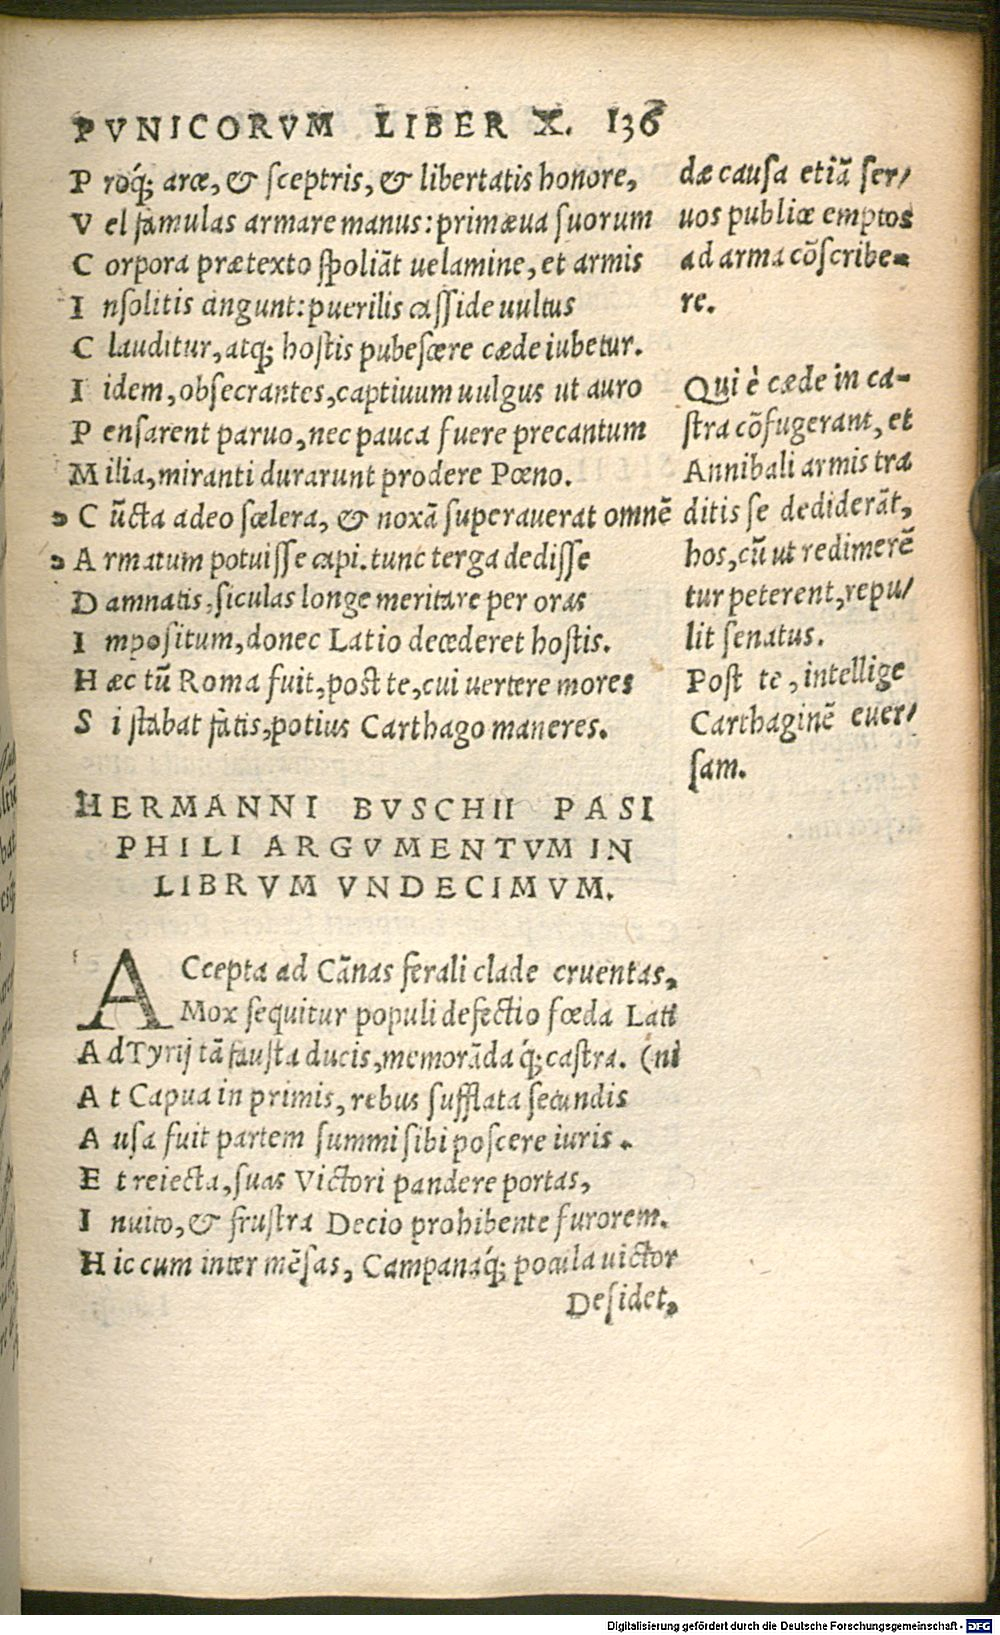 PVNICORVM LIBER X. 136
P roq́; aræ, & sceptris, & libertatis honore,
V el famulas armare manus: primæua suorum
C orpora prætexto spoliãt uelamine, et armis
I nsolitis angunt: puerilis casside uultus
C lauditur, atq; hostis pubescere cæde iubetur.
I idem, obsecrantes, captiuum uulgus ut auro
P ensarent paruo, nec pauca fuere precantum
M ilia, miranti durarunt prodere Pœno.
C ũcta adeo scelera, & noxã superauerat omnẽ
A rmatum potuisse capi. tunc terga dedisse
D amnatis, siculas longe meritare per oras
I mpositum, donec Latio decederet hostis.
H æc tũ Roma fuit, post te, cui uertere mores
S i stabat fatis, potius Carthago maneres.
dæ causa etiã ser/
uos publiæ emptos
ad arma cõscribe-
re.
Qui è cæde in ca-
stra cõfugerant, et
Annibali armis tra
ditis se dediderãt,
hos, cũ ut redimerẽ
tur peterent, repu/
lit senatus.
Post te, intellige
Carthaginẽ euer/
sam.
HERMANNI BVSCHII PASI
PHILI ARGVMENTVM IN
LIBRVM VNDECIMVM.
ACcepta ad Cãnas ferali clade cruentas,
Mox sequitur populi defectio fœda Lati
A d Tyrij tã fausta ducis, memorãdaq́; castra. (ni
A t Capua in primis, rebus sufflata secundis
A usa fuit partem summi sibi poscere iuris.
E t reiecta, suas Victori pandere portas,
I nuito, & frustra Decio prohibente furorem.
H ic cum inter mẽsas, Campanaq́; pocula uictor
Desidet,
Digitalisierung gefördert durch die Deutsche Forschungsgemeinschaft - DFG